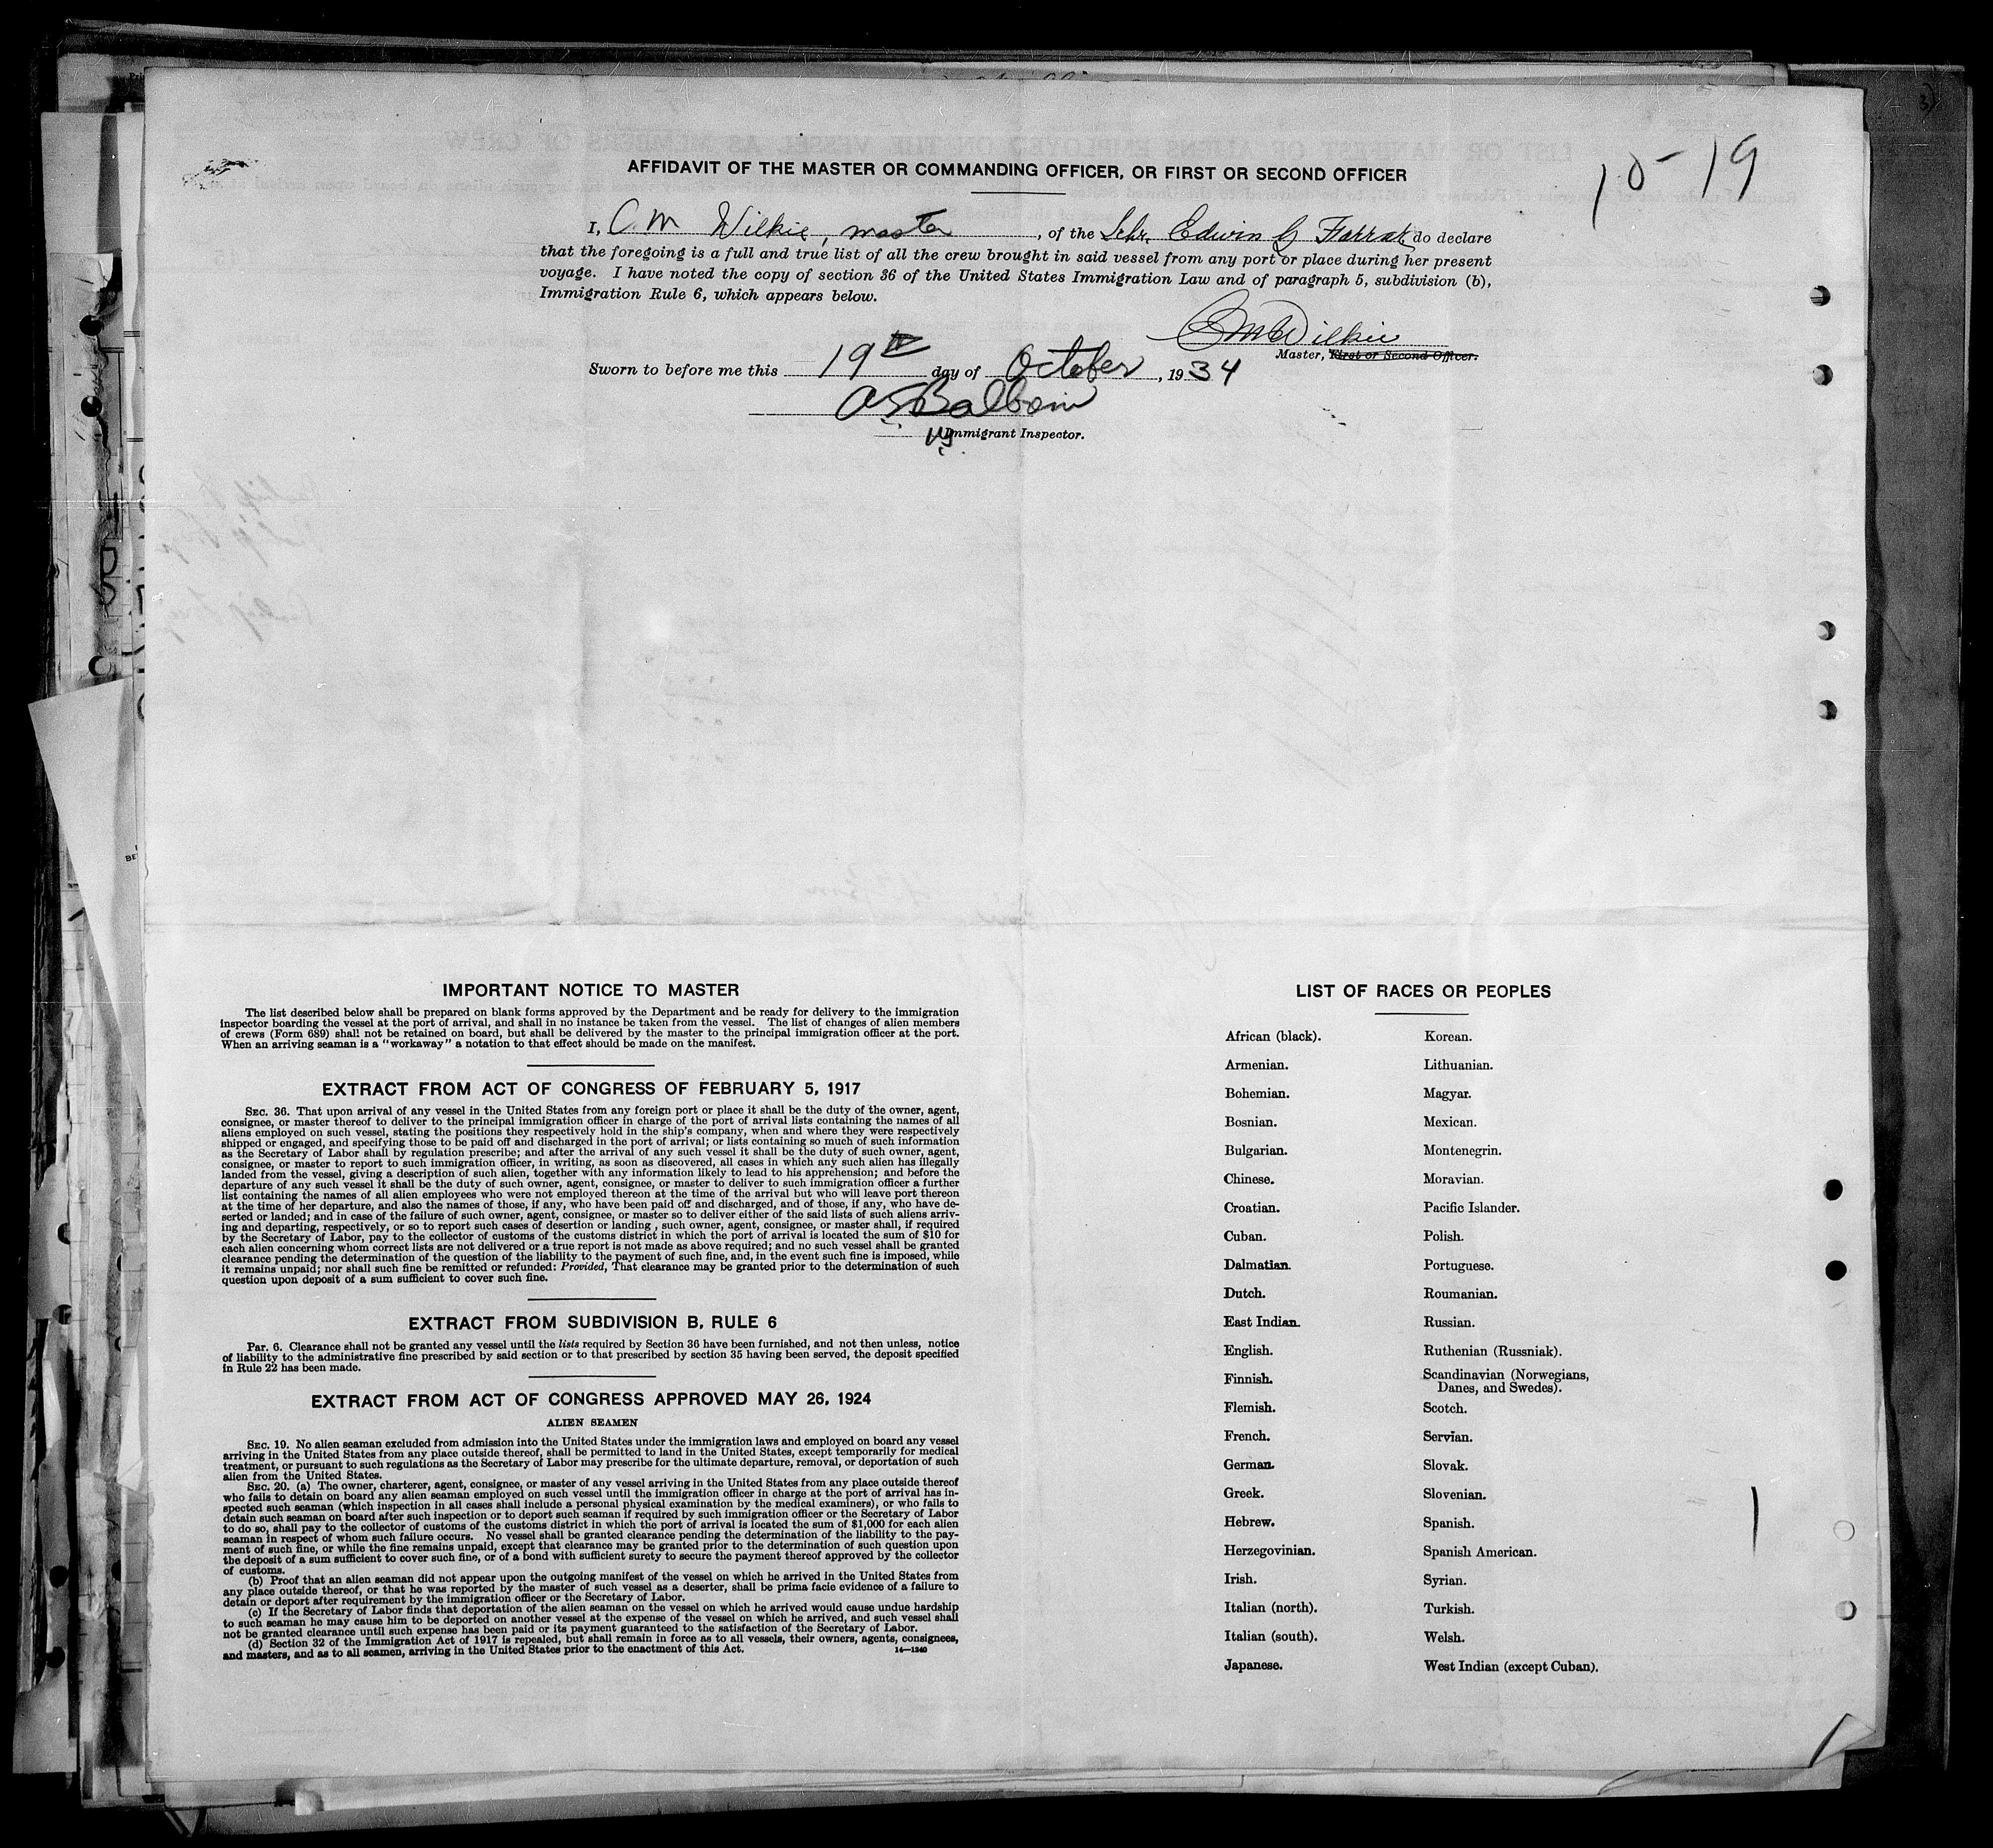 10-19
AFFIDAVIT OF THE MASTER OR COMMANDING OFFICER, OR FIRST OR SECOND OFFICER
I, C. M Wilkie, master, of the Schr. Edwin G Farrar, do declare
that the foregoing is a full and true list of all the crew brought in said vessel from any port or place during her present
voyage. I have noted the copy of section 36 of the United States Immigration Law and of paragraph 5, subdivision (b),
Immigration Rule 6, which appears below.
C M Wilkie
Master, First or Second Officer.
Sworn to before me this 19th day of October, 1934
Immigrant Inspector.
IMPORTANT NOTICE TO MASTER
The list described below shall be prepared on blank forms approved by the Department and be ready for delivery to the immigration
inspector boarding the vessel at the port of arrival, and shall in no instance be taken from the vessel. The list of changes of alien members
of crews (Form 689) shall not be retained on board, but shall be delivered by the master to the principal immigration officer at the port.
When an arriving seaman is a "workaway" a notation to that effect should be made on the manifest.
EXTRACT FROM ACT OF CONGRESS OF FEBRUARY 5, 1917
SEC. 36. That upon arrival of any vessel in the United States from any foreign port or place it shall be the duty of the owner, agent,
consignee, or master thereof to deliver to the principal immigration officer in charge of the port of arrival lists containing the names of all
aliens employed on such vessel, stating the positions they respectively hold in the ship's company, when and where they were respectively
shipped or engaged, and specifying those to be paid off and discharged in the port of arrival; or lists containing so much of such information
as the Secretary of Labor shall by regulation prescribe; and after the arrival of any such vessel it shall be the duty of such owner, agent,
consignee, or master to report to such immigration officer, in writing, as soon as discovered, all cases in which any such alien has illegally
landed from the vessel, giving a description of such alien, together with any information likely to lead to his apprehension; and before the
departure of any such vessel it shall be the duty of such owner, agent, consignee, or master to deliver to such immigration officer a further
list containing the names of all alien employees who were not employed thereon at the time of the arrival but who will leave port thereon
at the time of her departure, and also the names of those, if any, who have been paid off and discharged, and of those, if any, who have de-
serted or landed; and in case of the failure of such owner, agent, consignee, or master so to deliver either of the said lists of such aliens arriv-
ing and departing, respectively, or so to report such cases of desertion or landing, such owner, agent, consignee, or master shall, if required
by the Secretary of Labor, pay to the collector of customs of the customs district in which the port of arrival is located the sum of $10 for
each alien concerning whom correct lists are not delivered or a true report is not made as above required; and no such vessel shall be granted
clearance pending the determination of the question of the liability to the payment of such fine, and, in the event such fine is imposed, while
it remains unpaid; nor shall such fine be remitted or refunded: Provided, That clearance may be granted prior to the determination of such
question upon deposit of a sum sufficient to cover such fine.
EXTRACT FROM SUBDIVISION B, RULE 6
Par. 6. Clearance shall not be granted any vessel until the lists required by Section 36 have been furnished, and not then unless, notice
of liability to the administrative fine prescribed by said section or to that prescribed by section 35 having been served, the deposit specified
in Rule 22 has been made.
EXTRACT FROM ACT OF CONGRESS APPROVED MAY 26, 1924
ALIEN SEAMEN
SEC. 19. No alien seaman excluded from admission into the United States under the immigration laws and employed on board any vessel
arriving in the United States from any place outside thereof, shall be permitted to land in the United States, except temporarily for medical
treatment, or pursuant to such regulations as the Secretary of Labor may prescribe for the ultimate departure, removal, or deportation of such
alien from the United States.
SEC. 20. (a) The owner, charterer, agent, consignee, or master of any vessel arriving in the United States from any place outside thereof
who fails to detain on board any alien seaman employed on such vessel until the immigration officer in charge at the port of arrival has in-
spected such seaman (which inspection in all cases shall include a personal physical examination by the medical examiners), or who fails to
detain such seaman on board after such inspection or to deport such seaman if required by such immigration officer or the Secretary of Labor
to do so, shall pay to the collector of customs of the customs district in which the port of arrival is located the sum of $1,000 for each alien
seaman in respect of whom such failure occurs. No vessel shall be granted clearance pending the determination of the liability to the pay-
ment of such fine, or while the fine remains unpaid, except that clearance may be granted prior to the determination of such question upon
the deposit of a sum sufficient to cover such fine, or of a bond with sufficient surety to secure the payment thereof approved by the collector
of customs.
(b) Proof that an alien seaman did not appear upon the outgoing manifest of the vessel on which he arrived in the United States from
any place outside thereof, or that he was reported by the master of such vessel as a deserter, shall be prima facie evidence of a failure to
detain or deport after requirement by the immigration officer or the Secretary of Labor.
(c) If the Secretary of Labor finds that deportation of the alien seaman on the vessel on which he arrived would cause undue hardship
to such seaman he may cause him to be deported on another vessel at the expense of the vessel on which he arrived, and such vessel shall
not be granted clearance until such expense has been paid or its payment guaranteed to the satisfaction of the Secretary of Labor.
(d) Section 32 of the Immigration Act of 1917 is repealed, but shall remain in force as to all vessels, their owners, agents, consignees,
and masters, and as to all seamen, arriving in the United States prior to the enactment of this Act. 14—1240
LIST OF RACES OR PEOPLES
African (black). Korean.
Armenian. Lithuanian.
Bohemian. Magyar.
Bosnian. Mexican.
Bulgarian. Montenegrin.
Chinese. Moravian.
Croatian. Pacific Islander.
Cuban. Polish.
Dalmatian. Portuguese.
Dutch. Roumanian.
East Indian. Russian.
English. Ruthenian (Russniak).
Finnish. Scandinavian (Norwegians,
Danes, and Swedes).
Flemish. Scotch.
French. Servian.
German. Slovak.
Greek. Slovenian.
Hebrew. Spanish.
Herzegovinian. Spanish American.
Irish. Syrian.
Italian (north). Turkish.
Italian (south). Welsh.
Japanese. West Indian (except Cuban).